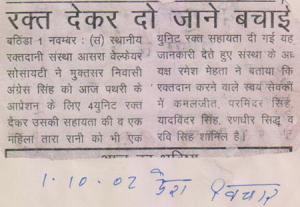 रक्त देकर दो जाने बचाई
बठिंडा 1 नवम्बर : (सं) स्थानीय
रक्तदानी संस्था आसरा वेल्फेयर
सोसायटी ने मुक्तसर निवासी
अंग्रेस सिंह को आज पथरी के
आप्रेशन के लिए 4युनिट रक्त
देकर उसकी सहायता की व एक
महिला तारा रानी को भी एक
युनिट रक्त सहायता दी गई यह
जानकारी देते हुए संस्था के अ
यक्ष रमेश मेहता ने बताया कि
रक्तदान करने वाले स्वयं सेवकों
में कमलजीत, परमिंदर सिंह,
यादविंदर सिंह, रणधीर सिद्धु व
रवि सिंह शामिल है।
1.10.02